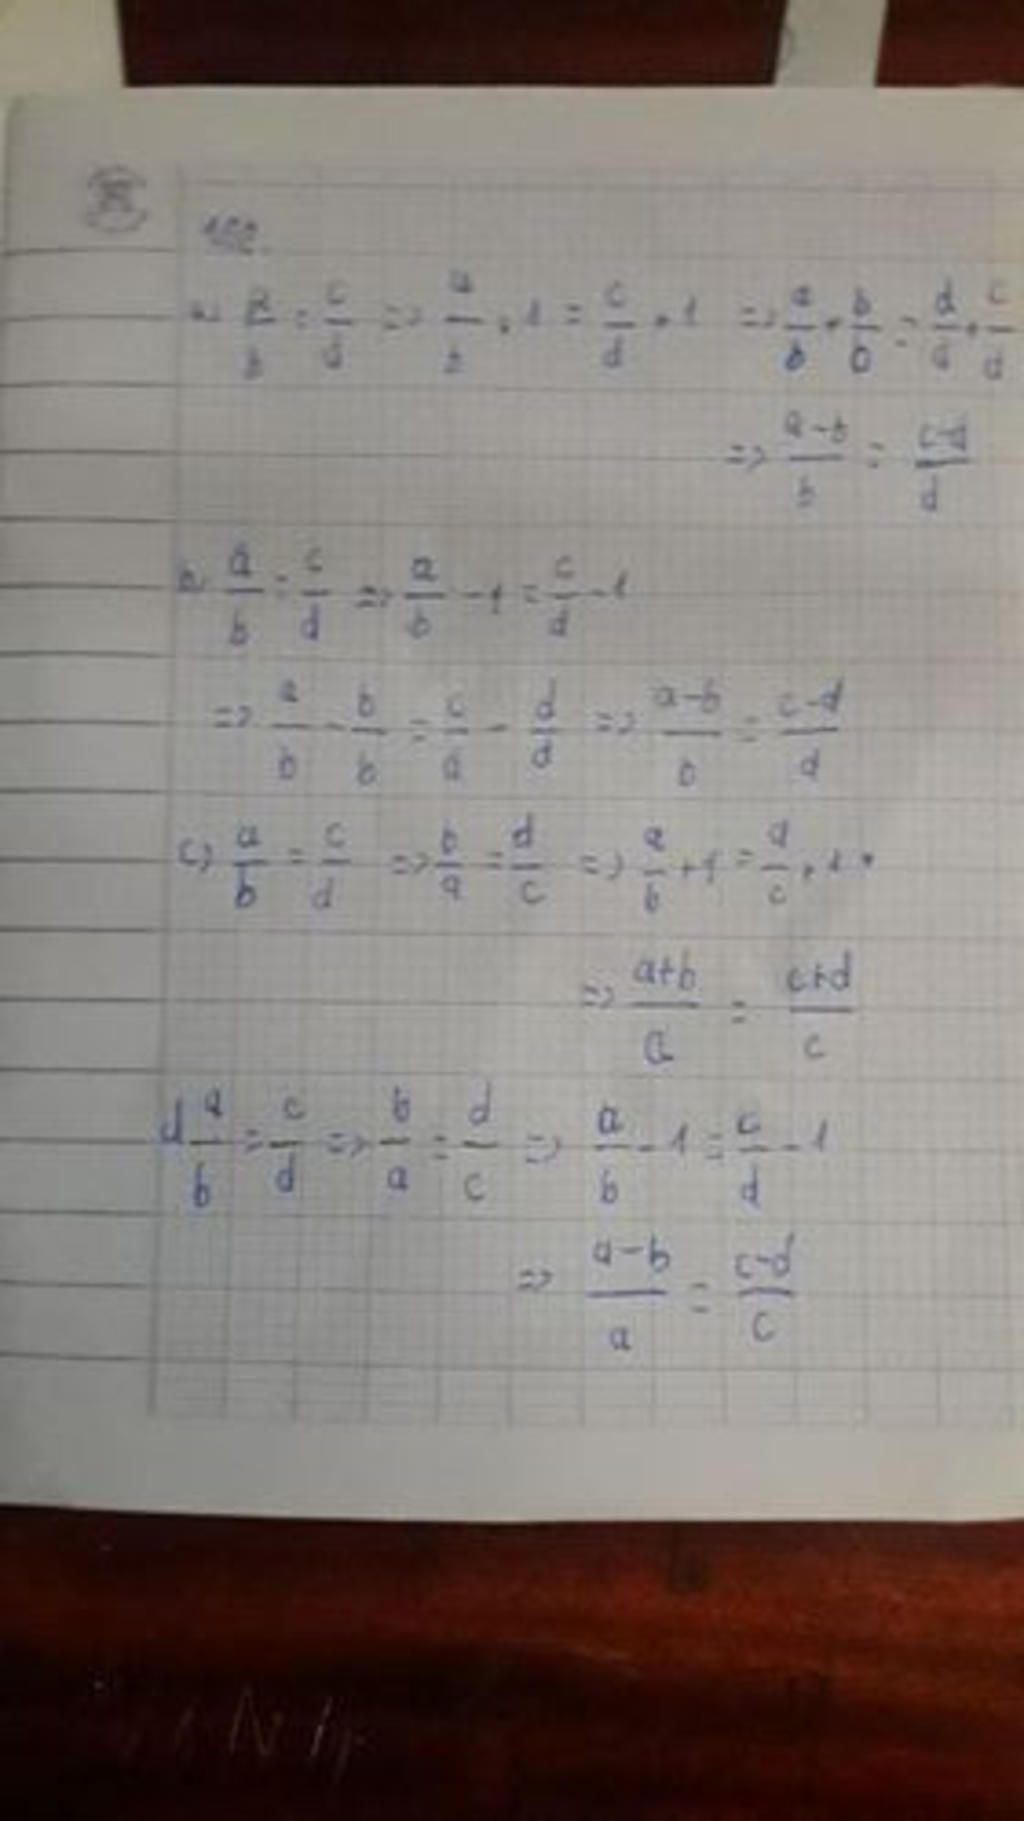 a) a/b = c/d => a/b + 1 = c/d + 1 => a/b + b/b = d/d + c/d
=> a-b/b = c-d/d
b) a/b = c/d => a/b - 1 = c/d - 1
=> a/b - b/b = c/d - d/d => a-b/b = c-d/d
c) a/b = c/d => b/a = d/c => a/b + 1 = d/c + 1
=> a+b/a = c+d/c
d a/b = c/d => b/a = d/c => a/b - 1 = c/d - 1
=> a-b/a = c-d/c